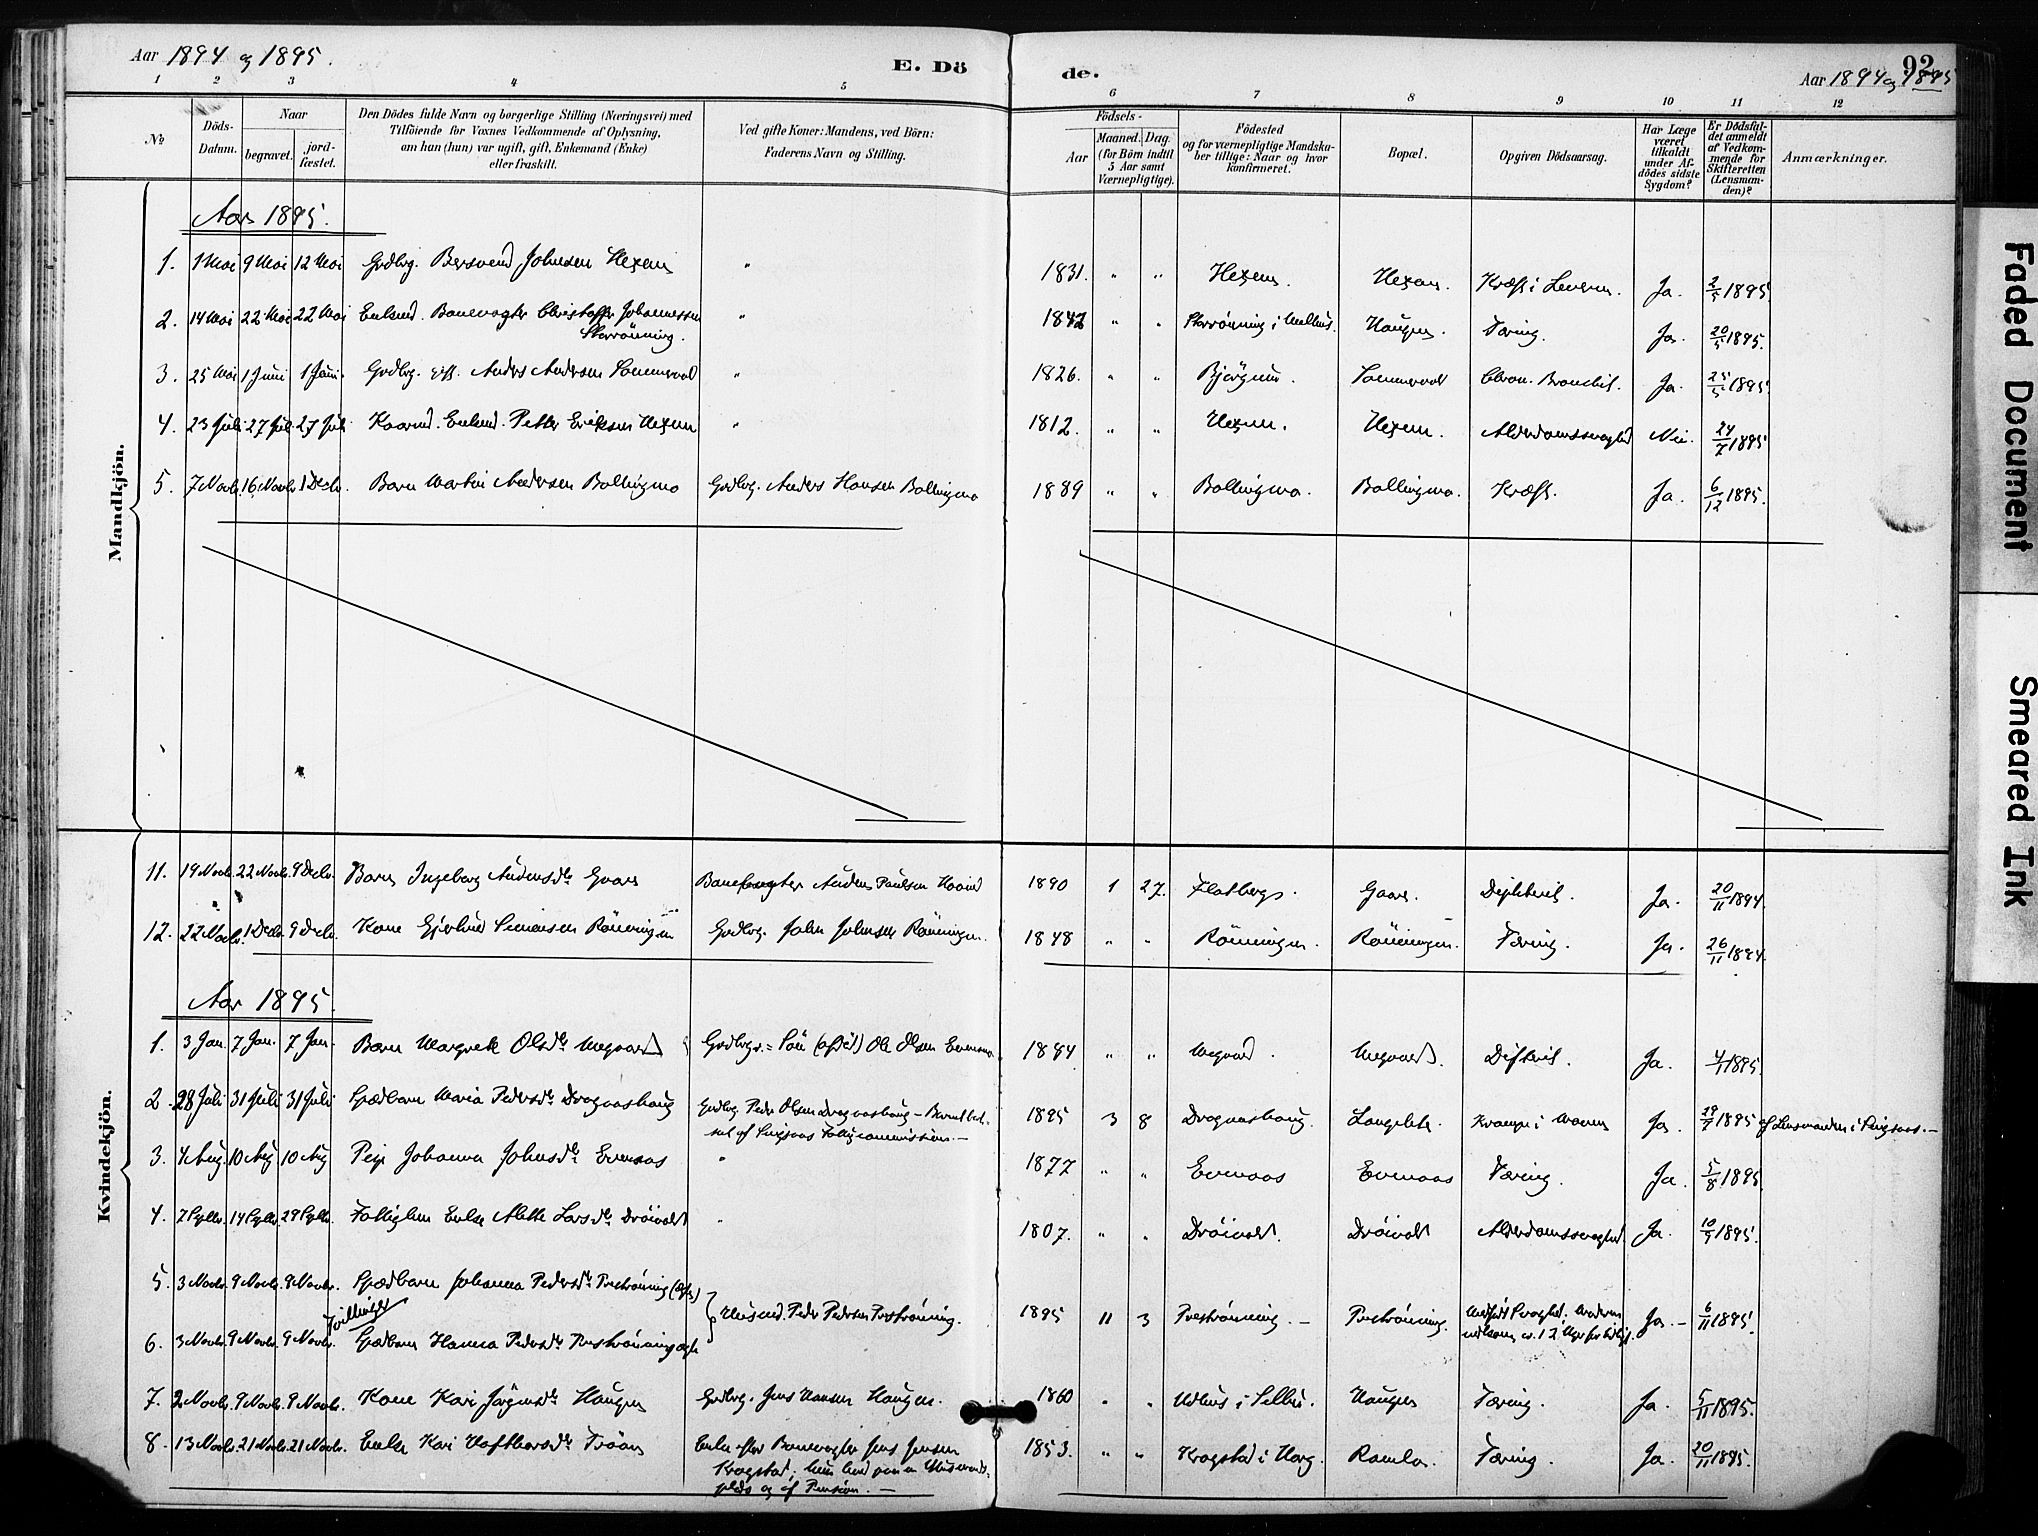 Aar 1894 og 1895.
E. Dö
de.
92
Aar 1894 og 1895
1 2 3 4 5 6 7 8 9 10 11 12
No.
Döds-Datum.
Naar
begravet.
jord-fæstet.
Den Dödes fulde Navn og borgerlige Stilling (Næringsvei) med
Tilföiende for Voxnes Vedkommende af Oplysning,
om han (hun) var ugift, gift, Enkemand (Enke)
eller fraskilt.
Ved gifte Koner: Mandens, ved Börn:
Faderens Navn og Stilling.
Födsels-
Aar
Maaned. Dag.
(for Börn indtil
5 Aar samt
Værnepligtige).
Födested
og for værnepligtige Mandska-
ber tillige: Naar og hvor
konfirmeret.
Bopæl.
Opgiven Dödsaarsag.
Har Læge
været
tilkaldt
under Af-
dödes sidste
Sygdom?
Er Dödsfal-
det anmeldt
af Vedkom-
mende for
Skifteretten
(Lensman-
den)?
Anmærkninger.
Mandkjön.
Aar 1895.
1. 1 Mai 9 Mai 12 Mai Grdbrg. Bersvend Johnsen Hexem " 1831. " " Hexem. Hexem. Kræft i Leveren. Ja. 2/5 1895
2. 14 Mai 22 Mai 22 Mai Enkmd. Banevogter Christoffer Johannessen " 1842 " " i Melhus. Haugen Tæring. Ja. 20/5 1895.
3. 25 Mai 1 Juni 1 Juni. Grdbrg. gift. Anders Andersen " 1826. " " Chron. Bronchit. Ja. 25/5 1895
4. 23 Juli 27 Juli 27 Juli Kaarmd. Enkmd. Petter Eriksen Hexem " 1812. " " Hexem. Hexem. Alderdomssvaghed Nei. 24/7 1895
5. 7 Novbr. 16 Novbr. 1 Decbr. Barn Martin Andersen Bollingmo Grdbrg. Anders Hansen Bollingmo 1889 " " Bollingmo. Bollingmo. Kræft. Ja. 6/12 1895.
Kvindekjön.
11. 19 Novbr. 22 Novbr. 9 Decbr. Barn Ingeborg Andersdtr. Gaare Banevogter Anders Paulsen 1890 1 27. Flatberg. Gaare. Difterit. Ja. 20/11 1894.
12. 22 Novbr. 1 Decbr. 9 Decbr. Kone Simonsen Rönningen Grdbrg. John Johnsen Rönningen. 1848 " " Rönningen. Rönningen. Tæring. Ja. 26/11 1894.
Aar 1895.
1. 3 Jan. 7 Jan. 7 Jan. Barn Margrete Olsdtr. Megaard Ole Olsen 1894 " " Megaard. Megaard. Difterit. Ja. 4/1 1895.
2. 28 Juli 31 Juli 31 Juli Spædbarn Maria Pedersdtr. Dragaashaug Grdbrg. Peder Olsen Dragaashaug – Barnet
af Singsaas Fattigcommission. –
1895 3 8 Dragaashaug. Langlete. Krampe i Maven Ja. 29/7 1895 af Lensmanden i Singsaas. –
3. 4 Aug. 10 Aug 10 Aug Pige Johanna Johnsdtr. Evenaas " 1877 " " Evenaas Evenaas Tæring. Ja. 5/8 1895.
4. 7 Septbr. 14 Septbr. 29 Septbr. Fattiglem Enke Larsdtr. Dröivold " 1807. " " Dröivold. Dröivold Alderdomssvaghed Ja. 10/9 1895.
5. 3 Novbr. 9 Novbr. 9 Novbr. Spædbarn Johanna Pedersdtr. Preströnning
Tvillinger
Husmd. Peder Pedersen Preströnning. 1895 11 3 Preströnning. – Preströnning. Medfödt Svaghed; Moderen
Ja. – 6/11 1895.
6. 3 Novbr. 9 Novbr. 9 Novbr. Spædbarn Hanna Pedersdtr. Preströnning
7. 2 Novbr. 9 Novbr. 9 Novbr. Kone Kari Jörgensdtr. Haugen Grdbrg. Jens Hansen Haugen. 1860 " " i Selbu. Haugen Tæring. Ja. 5/11 1895.
8. 13 Novbr. 21 Novbr. 21 Novbr. Enke Kari Enke efter Banevogter Jens Jensen
Kragstad; hun levede paa en Husmands-
plads og af Pension. –
1853. " " Kragstad i Horg. Ramlo. Tæring. Ja. 20/11 1895.
Faded Document
Smeared Ink